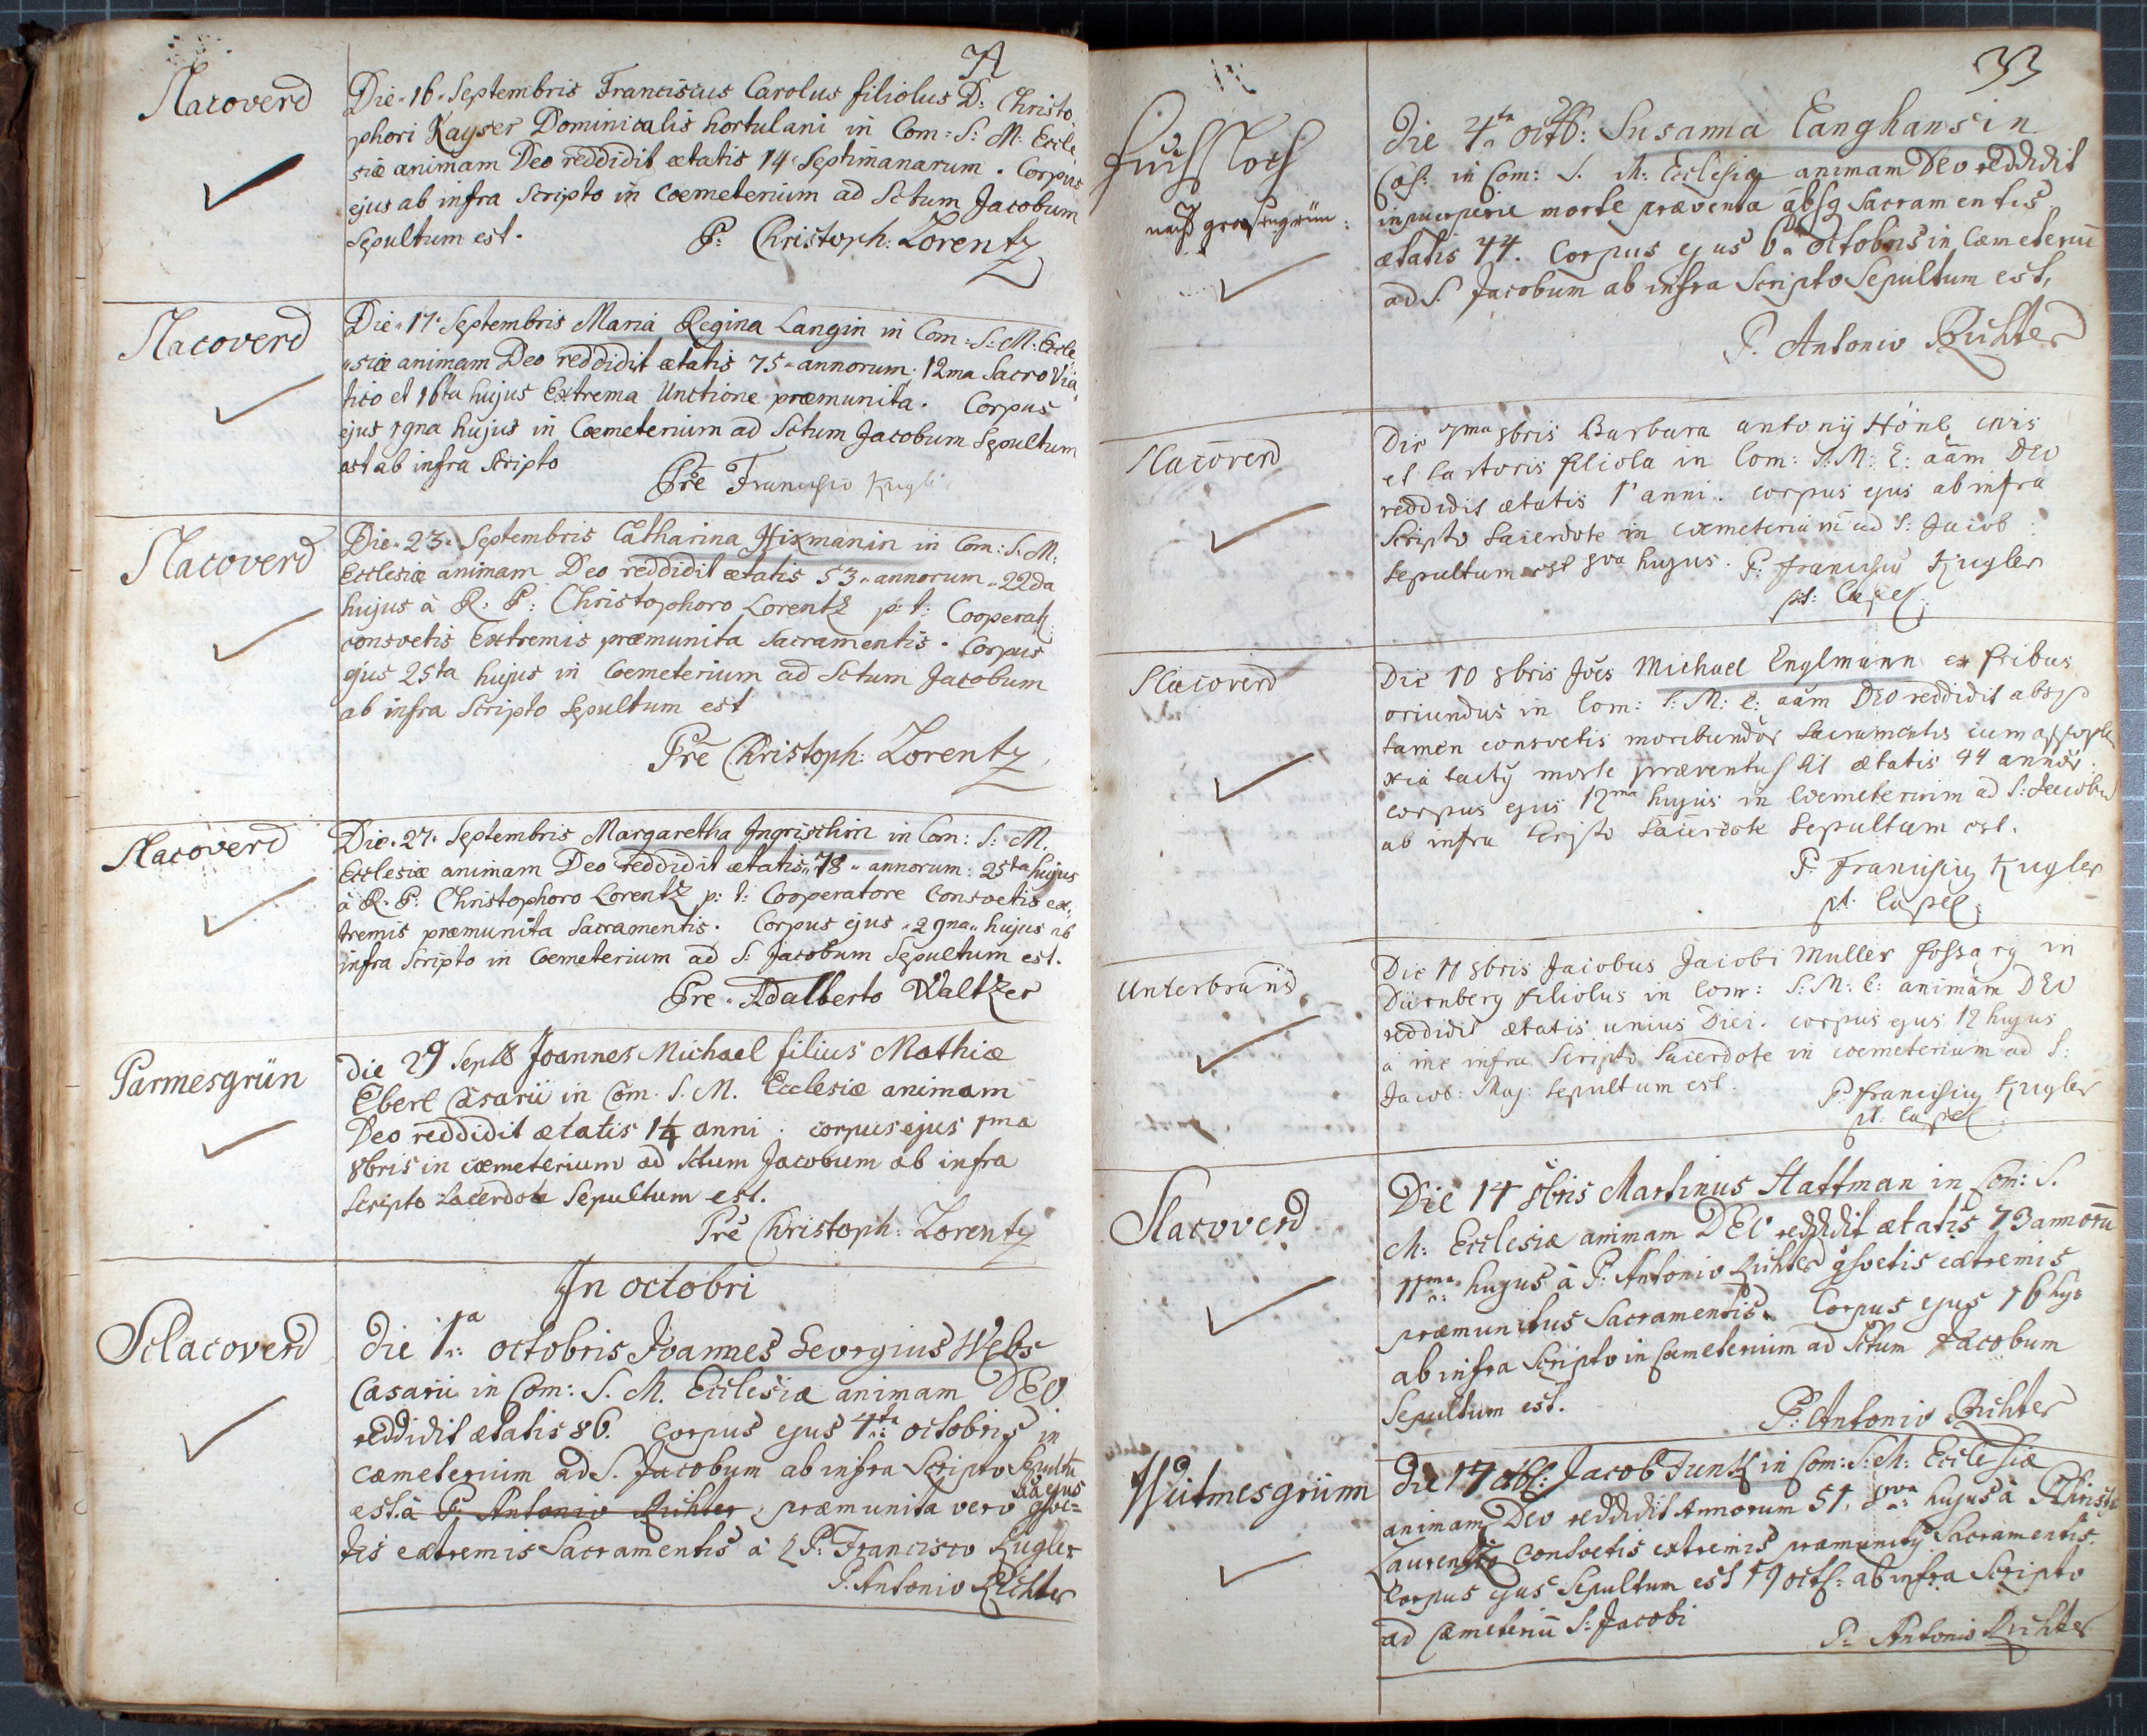 Slacoverd
Die 16 Septembris Franciscus Carolus filiolus D: Christo
phori Kayser Dominicalis hortulani in Com: S: M: Eccle
siæ animam Deo reddidit ætatis 14 Septimanarum. Corpus
ejus ab infra Scripto in Coemeterium ad Sctum Jacobum
Sepultum est. P: Christoph: Lorentz
Slacoverd
Die 17 Septembris Maria Regina Langin in Com: S: M: Eccle
siæ animam Deo reddidit ætatis 75 annorum; 12ma Sacro Via
tico et 16ta hujus Extrema Unctione præmunita. Corpus
ejus 19na hujus in Coemeterium ad Sctum Jacobum Sepultum
est ab infra Scripto
Pre Francisco Kugl
Slacoverd
Die 23 Septembris Catharina Hixmanin in Com: S: M:
Ecclesiæ animam Deo reddidit ætatis 53 annorum 22da
hujus à R: P: Christophoro Lorentz p: t: Cooperat:
consvetis Extremis præmunita Sacramentis. Corpus
ejus 25ta hujus in Coemeterium ad Sctum Jacobum
ab infra Scripto Sepultum est
Pre Christoph: Lorentz
Slacoverd
Die 27 Septembris Margaretha Ingrischin in Com: S: M.
Ecclesiæ animam Deo reddidit ætatis 78 annorum: 25ta hujus
à R. P: Christophoro Lorentz p: t: Cooperatore Consvetis ex
tremis præmunita Sacramentis. Corpus ejus 29na hujus ab
infra Scripto in Coemeterium ad S: Jacobum Sepultum est.
Pre Adalberto Waltzer
Parmesgrün
Die 29 Sept Joannes Michael filius Mathiæ
Eberl Casarii in Com. S. M. Ecclesiæ animam
Deo reddidit ætatis 1¼ anni. corpus ejus 1ma
8bris in cæmeterium ad Sctum Jacobum ab infra
Scripto Sacerdote Sepultum est.
Pre Christoph: Lorentz
In octobri
Sclacoverd
Die 1a octobris Joannes Georgius Webs
Casarii in Com: S. M. Ecclesiæ animam DEO
reddidit ætatis 86. Corpus ejus 4ta octobris in
cæmeterium ad S. Jacobum ab infra Scripto Sepultu
est à P: Antonio Richter, præmunita vero aa ejus gsve=
tis extremis Sacramentis à P: Francisco Kugler
P. Antonio Richter
33
Fuchsloch
nachst grasengrün:
Die 4ta octb: Susanna Langhansin
Cas: in Com: S. M: Ecclesiæ animam Deo reddidit
in puerperie morte præventa absq Sacramentis
ætatis 44. Corpus ejus 6a octobris in Cæmeteriu
ad S. Jacobum ab infra Scripto Sepultum est,
P. Antonio Richter
Slacoverd
Die 7ma 8bris Barbara antonij Hönl civis
et Sartoris filiola in Com: S: M: E: aam DEO
reddidit ætatis 1 anni. corpus ejus ab infra
Scripto Sacerdote in coemeterium ad S: Jacob:
Sepultum est 8va hujus. P: Francisco Kugler
pt: Capel:
Slacoverd
Die 10 8bris Joes Michael Englmann ex
oriundus in Com: S: M: E: aam DEO reddidit absq
tamen consvetis moribundor Sacramentis cum apople
xia tactq morte præventus sit ætatis 44 annor.
corpus ejus 12ma hujus in Coemeterium ad S: Jacobu
ab infra Scripto Sacerdote Sepultum est.
P. Francisco Kugler
pt. Capel:
Unterbrand
Die 11 8bris Jacobus Jacobi Muller fossarij in
Dürnberg filiolus in Com: S: M: E: animam DEO
reddidit ætatis unius Diei. corpus ejus 12 hujus
a me infra Scripto Sacerdote in coemeterium ad S:
Jacob: Maj: Sepultum est.
P: Francisco Kugler
pt. Capel:
Slacoverd
Die 14 8bris Martinus Hattman in Com: S.
M: Ecclesiæ animam DEO reddidit ætatis 73 annoru
11ma hujus à P: Antonio Richter gsvetis extremis
præmunitus Sacramentis. Corpus ejus 16 huj:
ab infra Scripto in Cæmeterium ad Sctum Jacobum
Sepultum est.
P: Antonio Richter
Wütmesgrünn
Die 17 8bs: Jacob Funk in Com: S: M: Ecclesiæ
animam Deo reddidit Annorum 51, 8va hujus à P Christ
Laurentzo Consvetis extremis præmunitq Sacramentis.
Corpus ejus Sepultum est 19 oct: ab infra Scripto
ad Cæmeteriu S: Jacobi
P: Antonio Richter
11